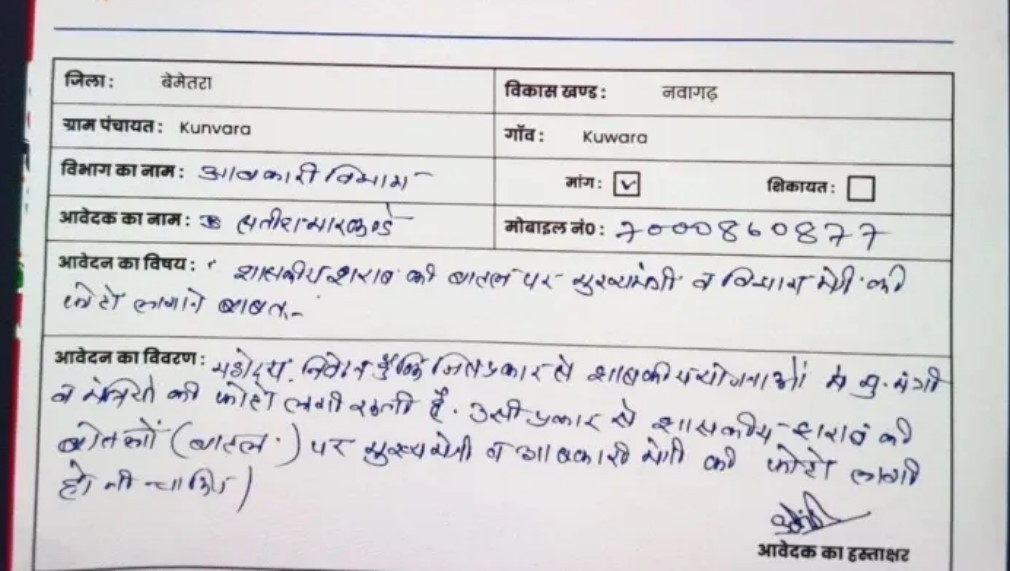 जिला: बेमेतरा
विकास खण्ड: नवागढ़
ग्राम पंचायत: Kunvara
गाँव: Kuwara
विभाग का नाम: आबकारी विभाग
मांग: ✓ शिकायत:
आवेदक का नाम: सतीश मारकण्डे
मोबाइल नं०: 7000860877
आवेदन का विषय: शासकीय शराब की बाटल पर मुख्यमंत्री व विभाग मंत्री की
फोटो लगाने बाबत्-
आवेदन का विवरण: महोदय, निवेदन है कि जिस प्रकार से शासकीय योजनाओं में मु. मंत्री
व मंत्रियों की फोटो लगी रहती है. उसी प्रकार से शासकीय शराब की
बोतलों (बाटल) पर मुख्यमंत्री व आबकारी मंत्री की फोटो लगी
होनी चाहिए।
आवेदक का हस्ताक्षर